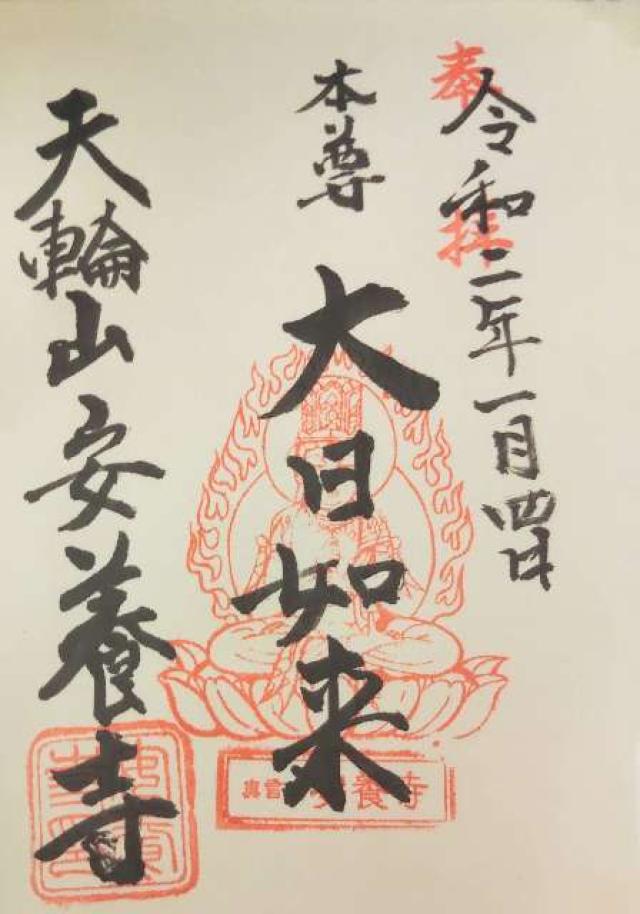 奉拝
令和二年一月四日
本尊
大日如来
天輪山安養寺
真言 安養寺